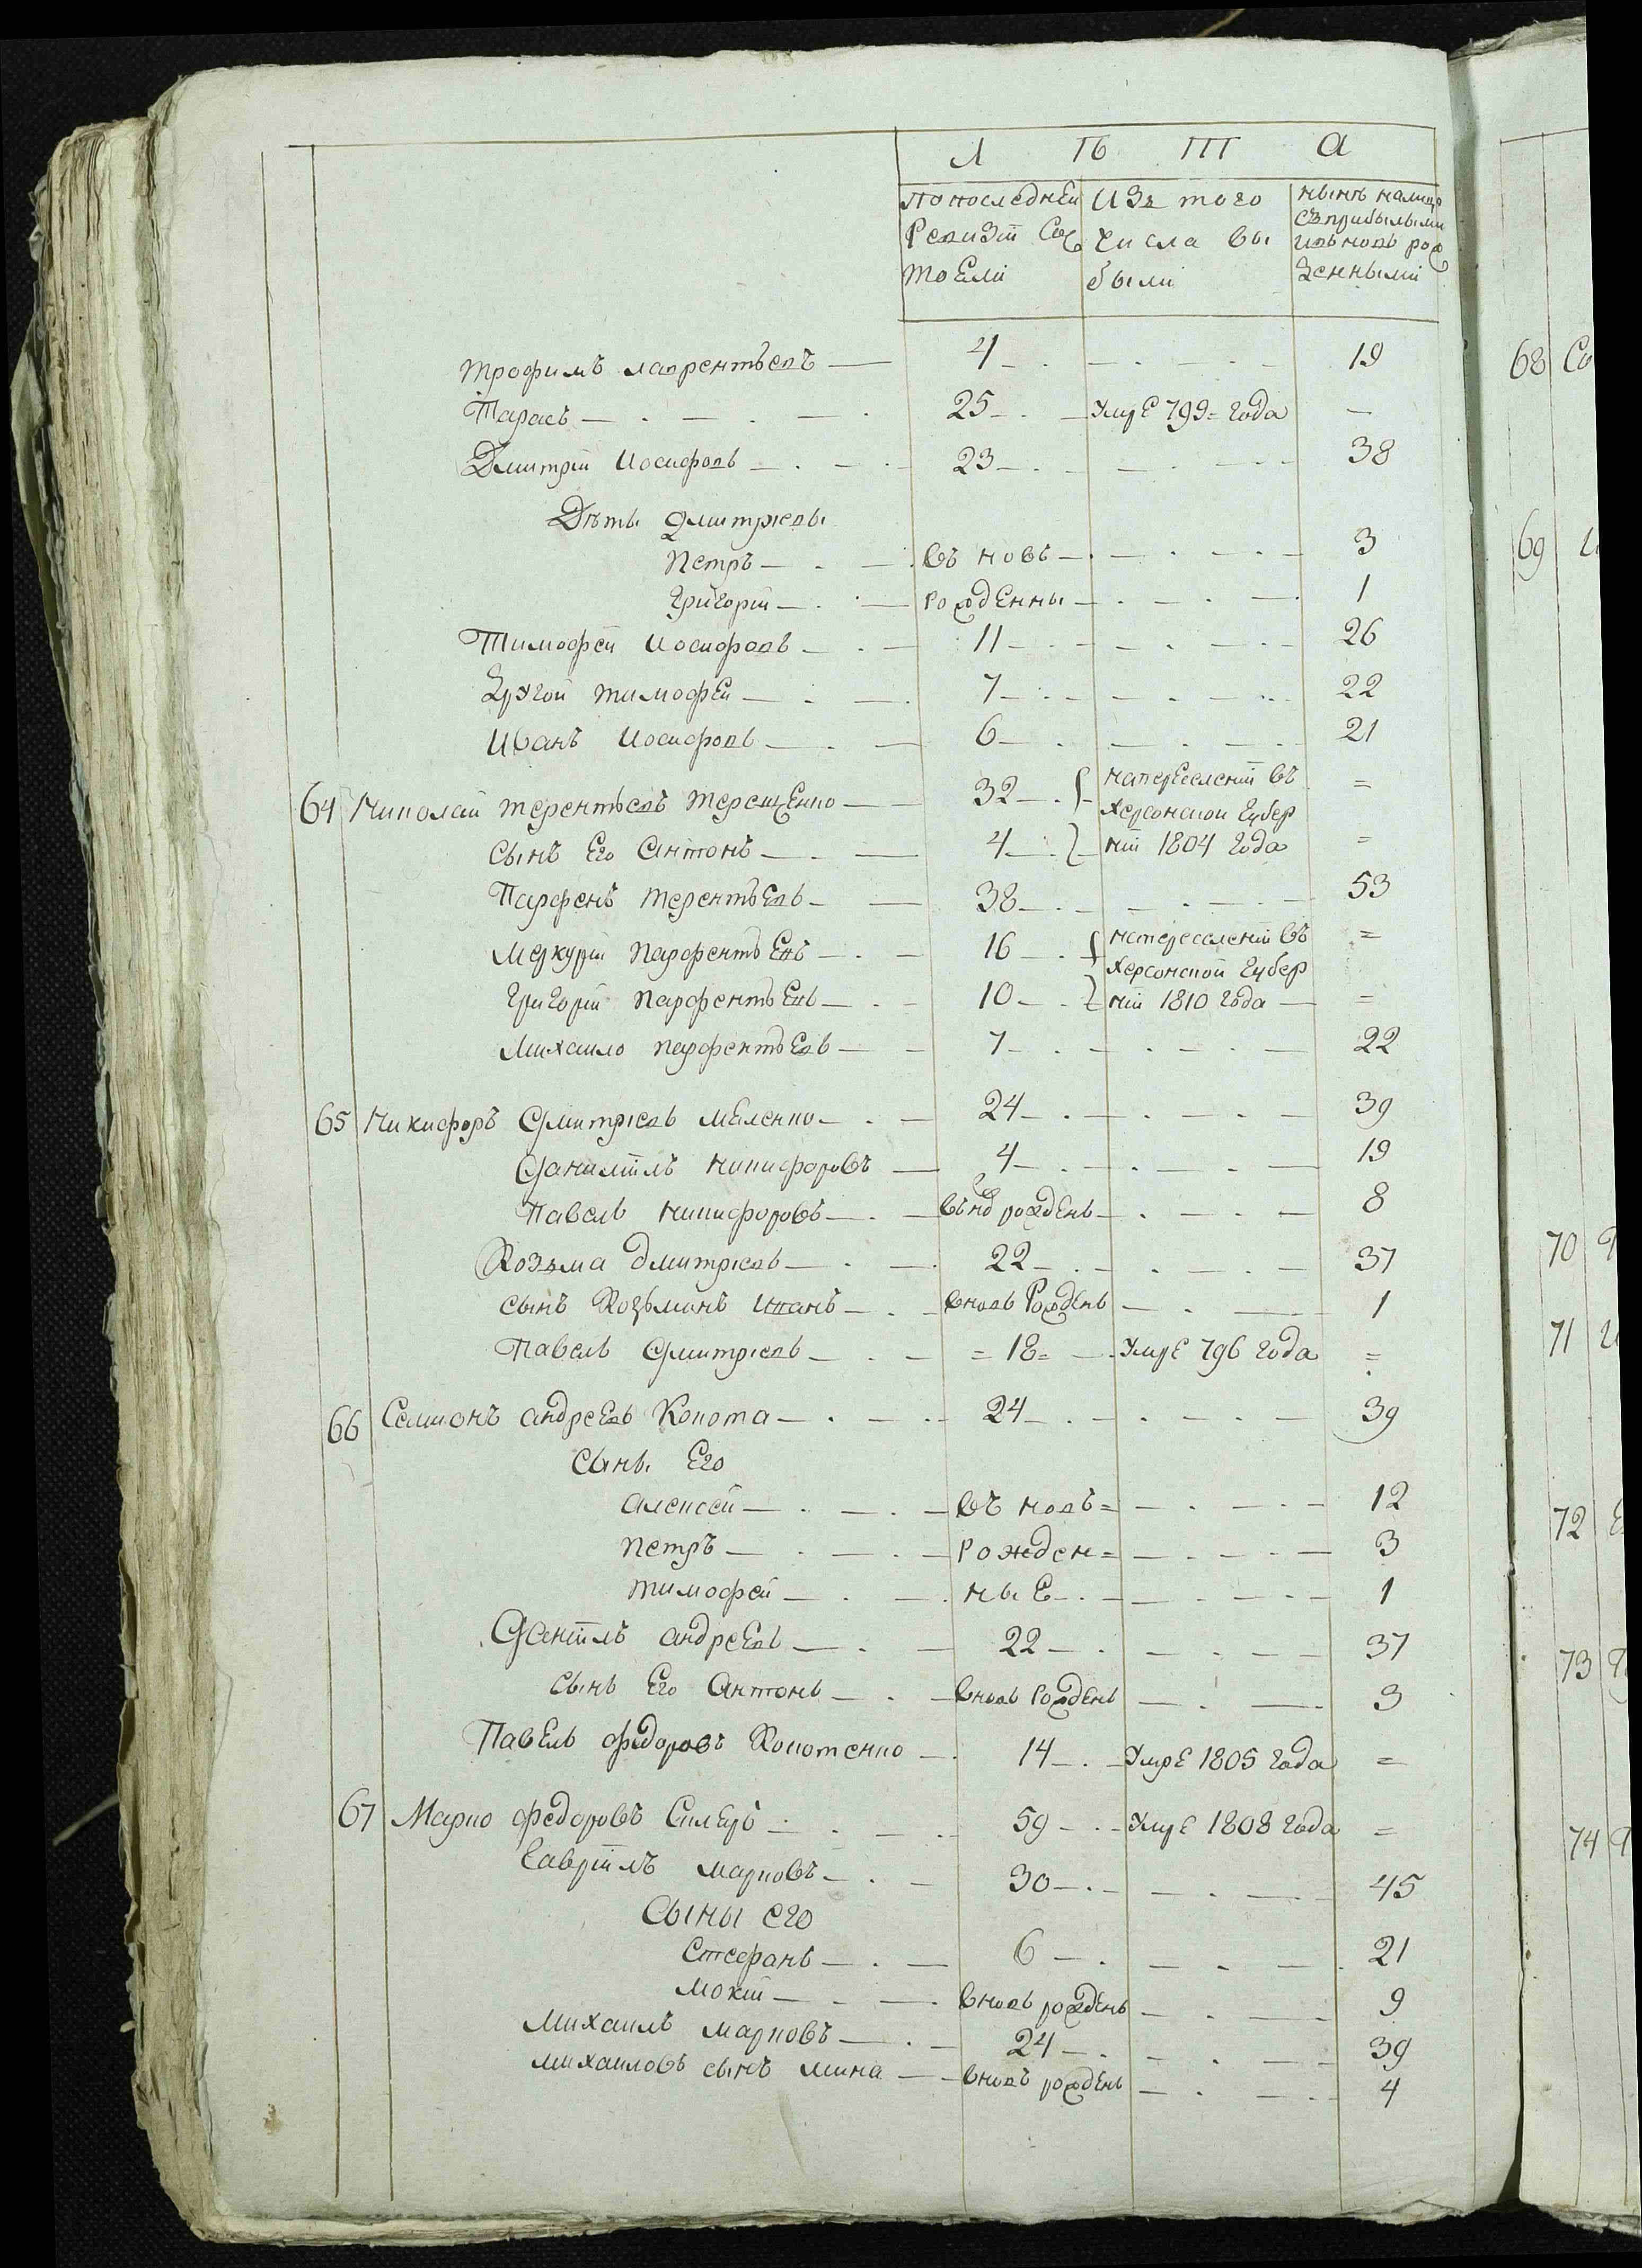 Л Ѣ Т А
По последней Изъ того нынѣ налицо
Ревизіи Сос числа вы съприбылыми
тоели были ивновь рож
денными
Трофимъ лаврентьевъ — 4 — 19
Тарасъ — 25 — Умре 799 = года —
Дмитрій Иосифовъ — 23 — 38
Дѣты дмитриевы
Петръ — въ новь — 3
Григорій — рожденны — 1
Тимофей Иосифовъ — 11 — 26
Другой тимофей — 7 — 22
Иванъ Иосифовъ — 6 — 21
64 Николай терентьевъ терещенко — 32 — напереселеніи въ =
Херсонской Губер
сынъ Его Антонъ — 4 — ніи 1804 года =
Парфенъ терентьевъ — 38 — 53
Меркурій парфентьевъ — 16 — напереселеніи въ =
Херсонской Губер
Григорій парфентьевъ — 10 — ніи 1810 года — =
Михаило парфентьевъ — 7 — 22
65 Никифоръ дмитриевъ — 24 — 39
Даніилъ никифоровъ — 4 — 19
Павелъ никифоровъ — рожденъ — 8
Козьма дмитриевъ — 22 — 37
сынъ Козьминъ Иванъ — вновь Рожденъ — 1
Павелъ дмитриевъ — = 18 = — Умре 796 года =
66 Семионъ андреевъ Копота — 24 — 39
Сыны Его
алексей — въ новъ = — 12
петръ — рожден = — 3
тимофей — ны Е — 1
Даніилъ андреевъ — 22 — 37
сынъ Его Антонъ — вновь рожденъ — 3
Павелъ федоровъ Копотенко — 14 — Умре 1805 года =
67 Марко федоровъ — 59 — Умре 1808 года =
Гавріилъ марковъ — 30 — 45
Сыны его
Стефанъ — 6 — 21
мокій — вновь рожденъ — 9
михаилъ марковъ — 24 — 39
михаиловъ сынъ мина — вновъ рожденъ — 4
68 Со
69 И
70
71 И
72
73
74